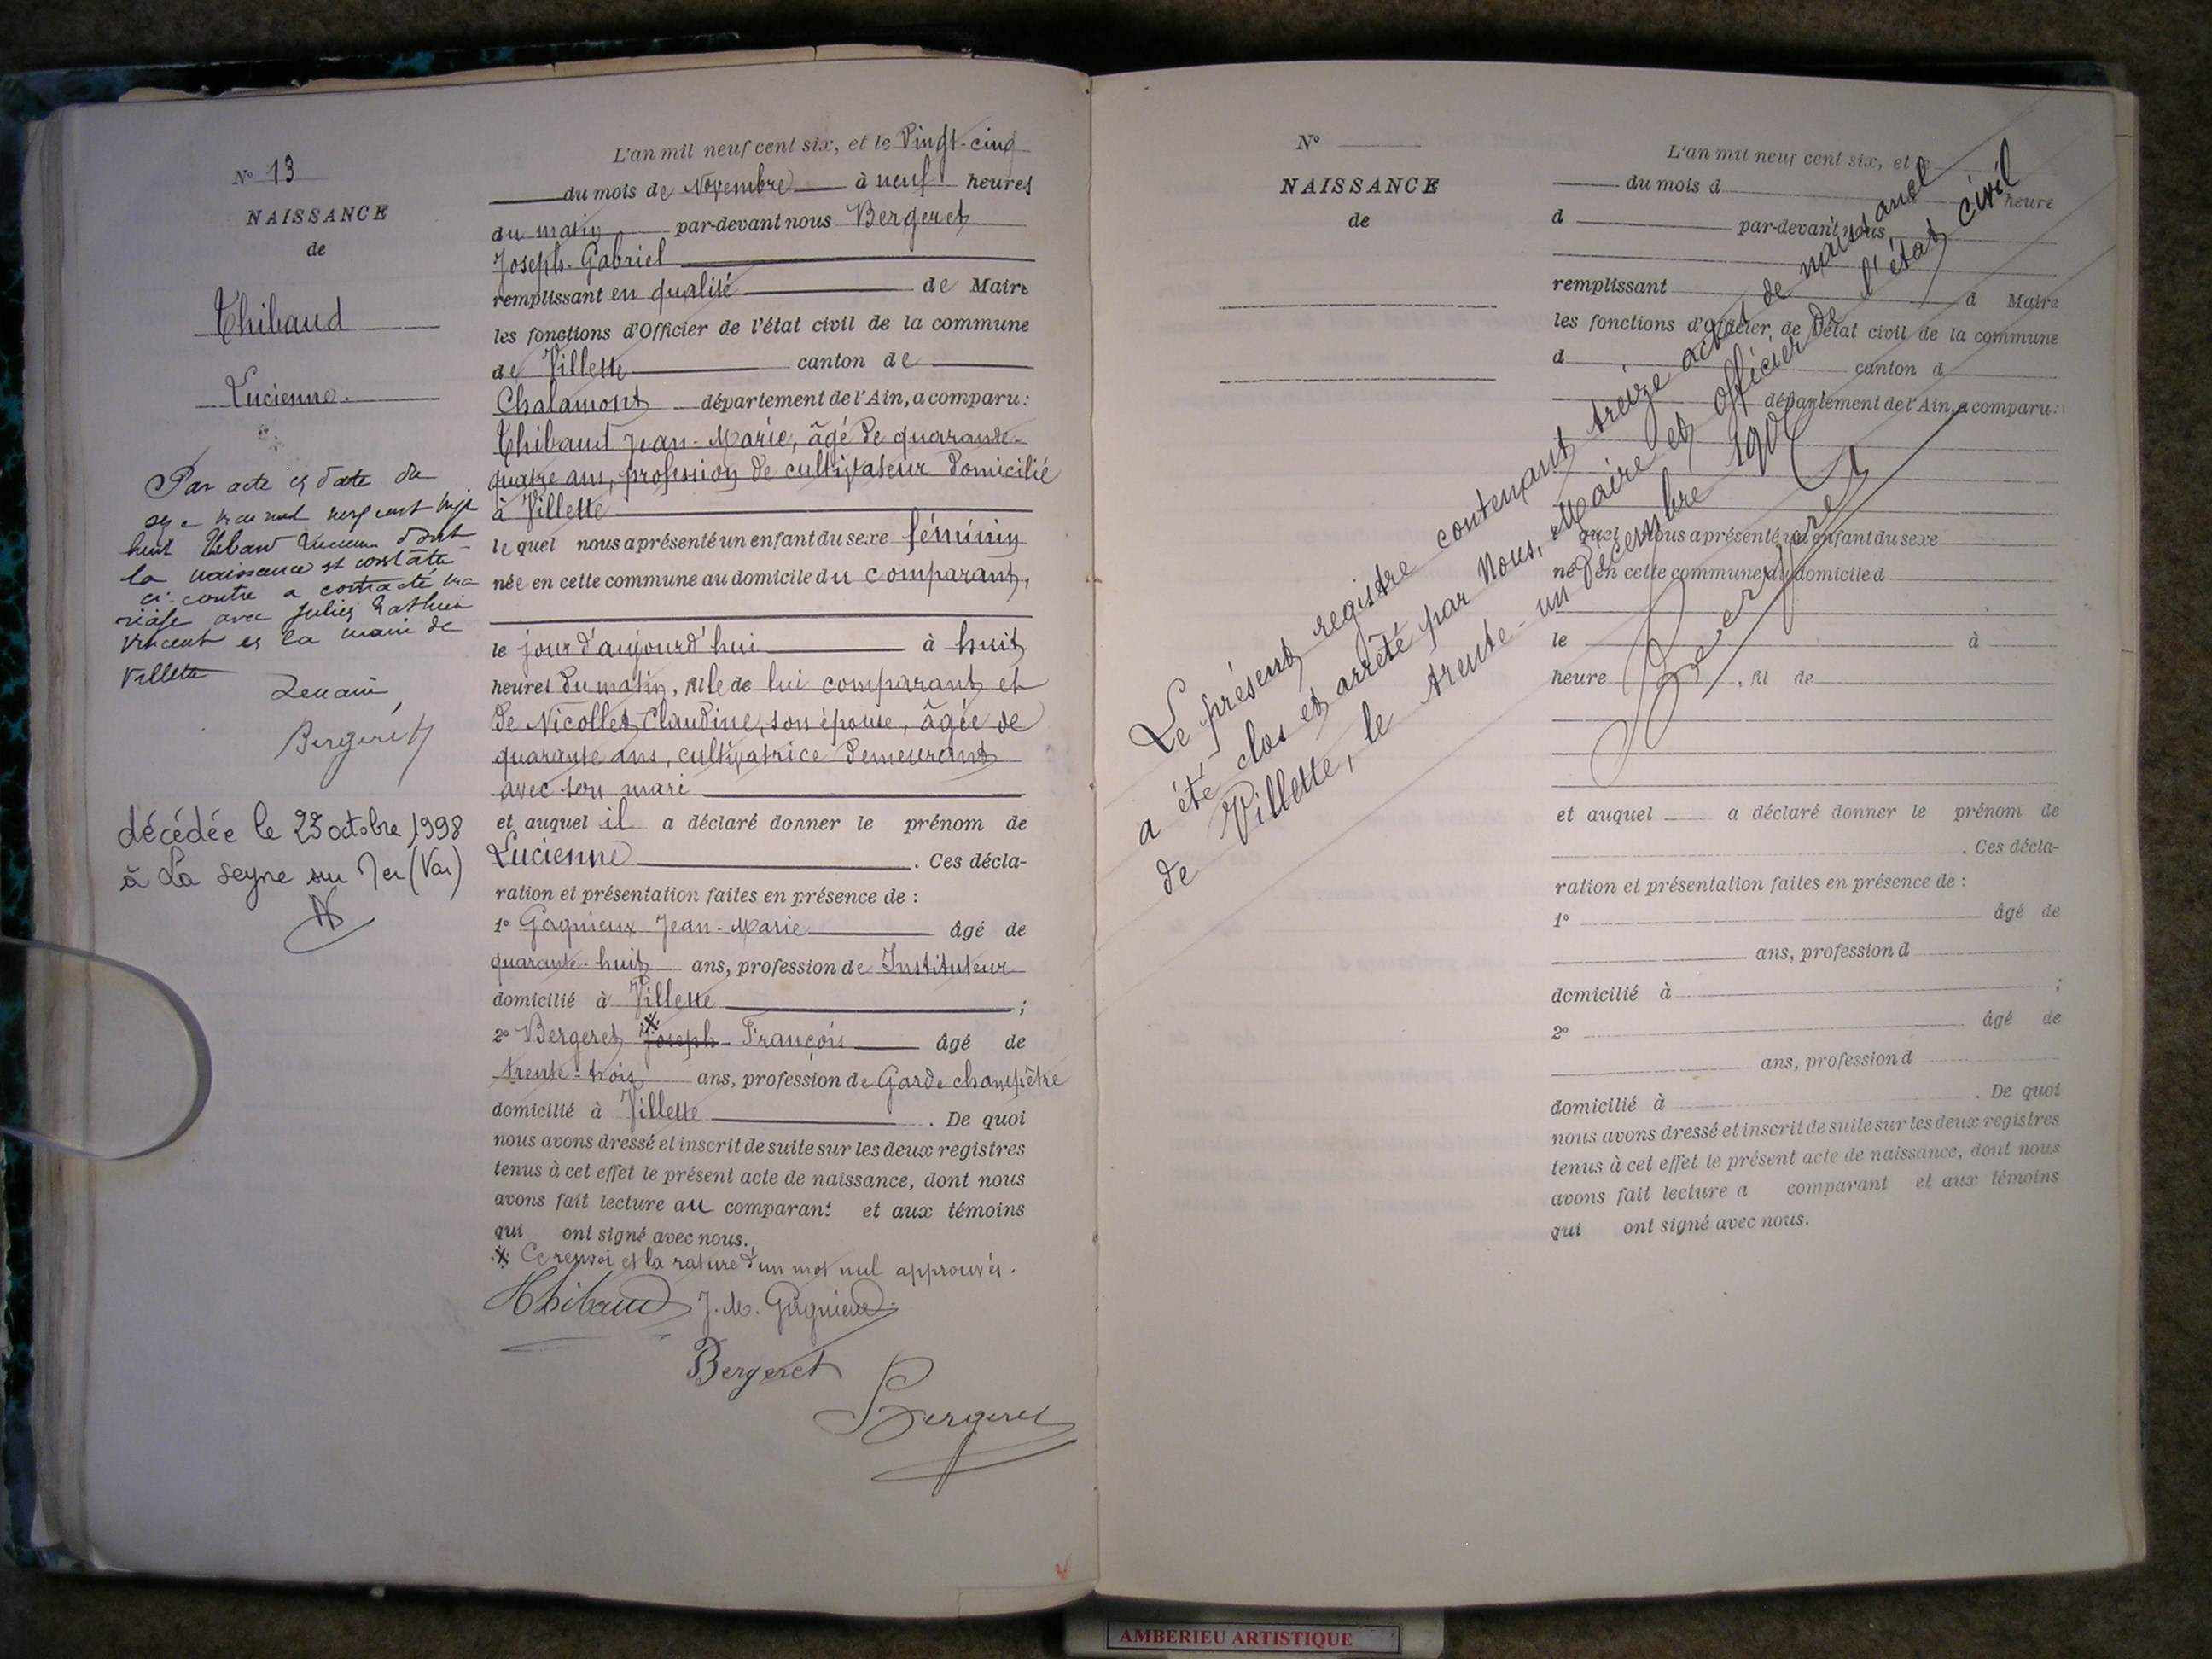 N° 13
NAISSANCE
de
Thibaud
Lucienne.
Par acte en date du
vingt huit
Thibaud Lucienne dont
la naissance est constatée
ci-contre a contracté ma
riage avec Julien
Vincent en la mairie de
Villette
Le maire,
Bergeret
décédée le 23 octobre 1998
à La Seyne sur Mer (Var)
L'an mil neuf cent six, et le Vingt-cinq
du mois de Novembre à neuf heures
du matin par-devant nous Bergeret
Joseph-Gabriel
remplissant en qualité de Maire
les fonctions d'Officier de l'état civil de la commune
de Villette canton de
Chalamont département de l'Ain, a comparu :
Thibaud Jean-Marie, âgé de quarante-
quatre ans, profession de cultivateur domicilié
à Villette
lequel nous a présenté un enfant du sexe féminin
née en cette commune au domicile du comparant,
le jour d'aujourd'hui à huit
heures du matin, fille de lui comparant et
de Nicollet Claudine, son épouse, âgée de
quarante ans, cultivatrice demeurant
avec son mari
et auquel il a déclaré donner le prénom de
Lucienne. Ces décla-
ration et présentation faites en présence de :
1° Gagnieux Jean-Marie âgé de
quarante-huit ans, profession de Instituteur
domicilié à Villette ;
2° Bergeret Joseph-François âgé de
trente-trois ans, profession de Garde champêtre
domicilié à Villette. De quoi
nous avons dressé et inscrit de suite sur les deux registres
tenus à cet effet le présent acte de naissance, dont nous
avons fait lecture au comparant et aux témoins
qui ont signé avec nous.
Ce renvoi et la rature d'un mot nul approuvés.
Thibaud J. M. Gagnieux
Bergeret
Bergeret
N°
NAISSANCE
de
L'an mil neuf cent six, et le
du mois d heure
d par-devant nous
remplissant d Maire
les fonctions d'Officier de l'état civil de la commune
d canton d
département de l'Ain, a comparu :
quel nous a présenté un enfant du sexe
né en cette commune au domicile d
le à
heure , fil de
et auquel a déclaré donner le prénom de
. Ces décla-
ration et présentation faites en présence de :
1° âgé de
ans, profession d
domicilié à ;
2° âgé de
ans, profession d
domicilié à . De quoi
nous avons dressé et inscrit de suite sur les deux registres
tenus à cet effet le présent acte de naissance, dont nous
avons fait lecture a comparant et aux témoins
qui ont signé avec nous.
Le présent registre contenant treize actes de naissance
a été clos et arrêté par Nous, Maire et officier de l'état civil
de Villette, le trente-un Décembre 1906
Bergeret
AMBERIEU ARTISTIQUE